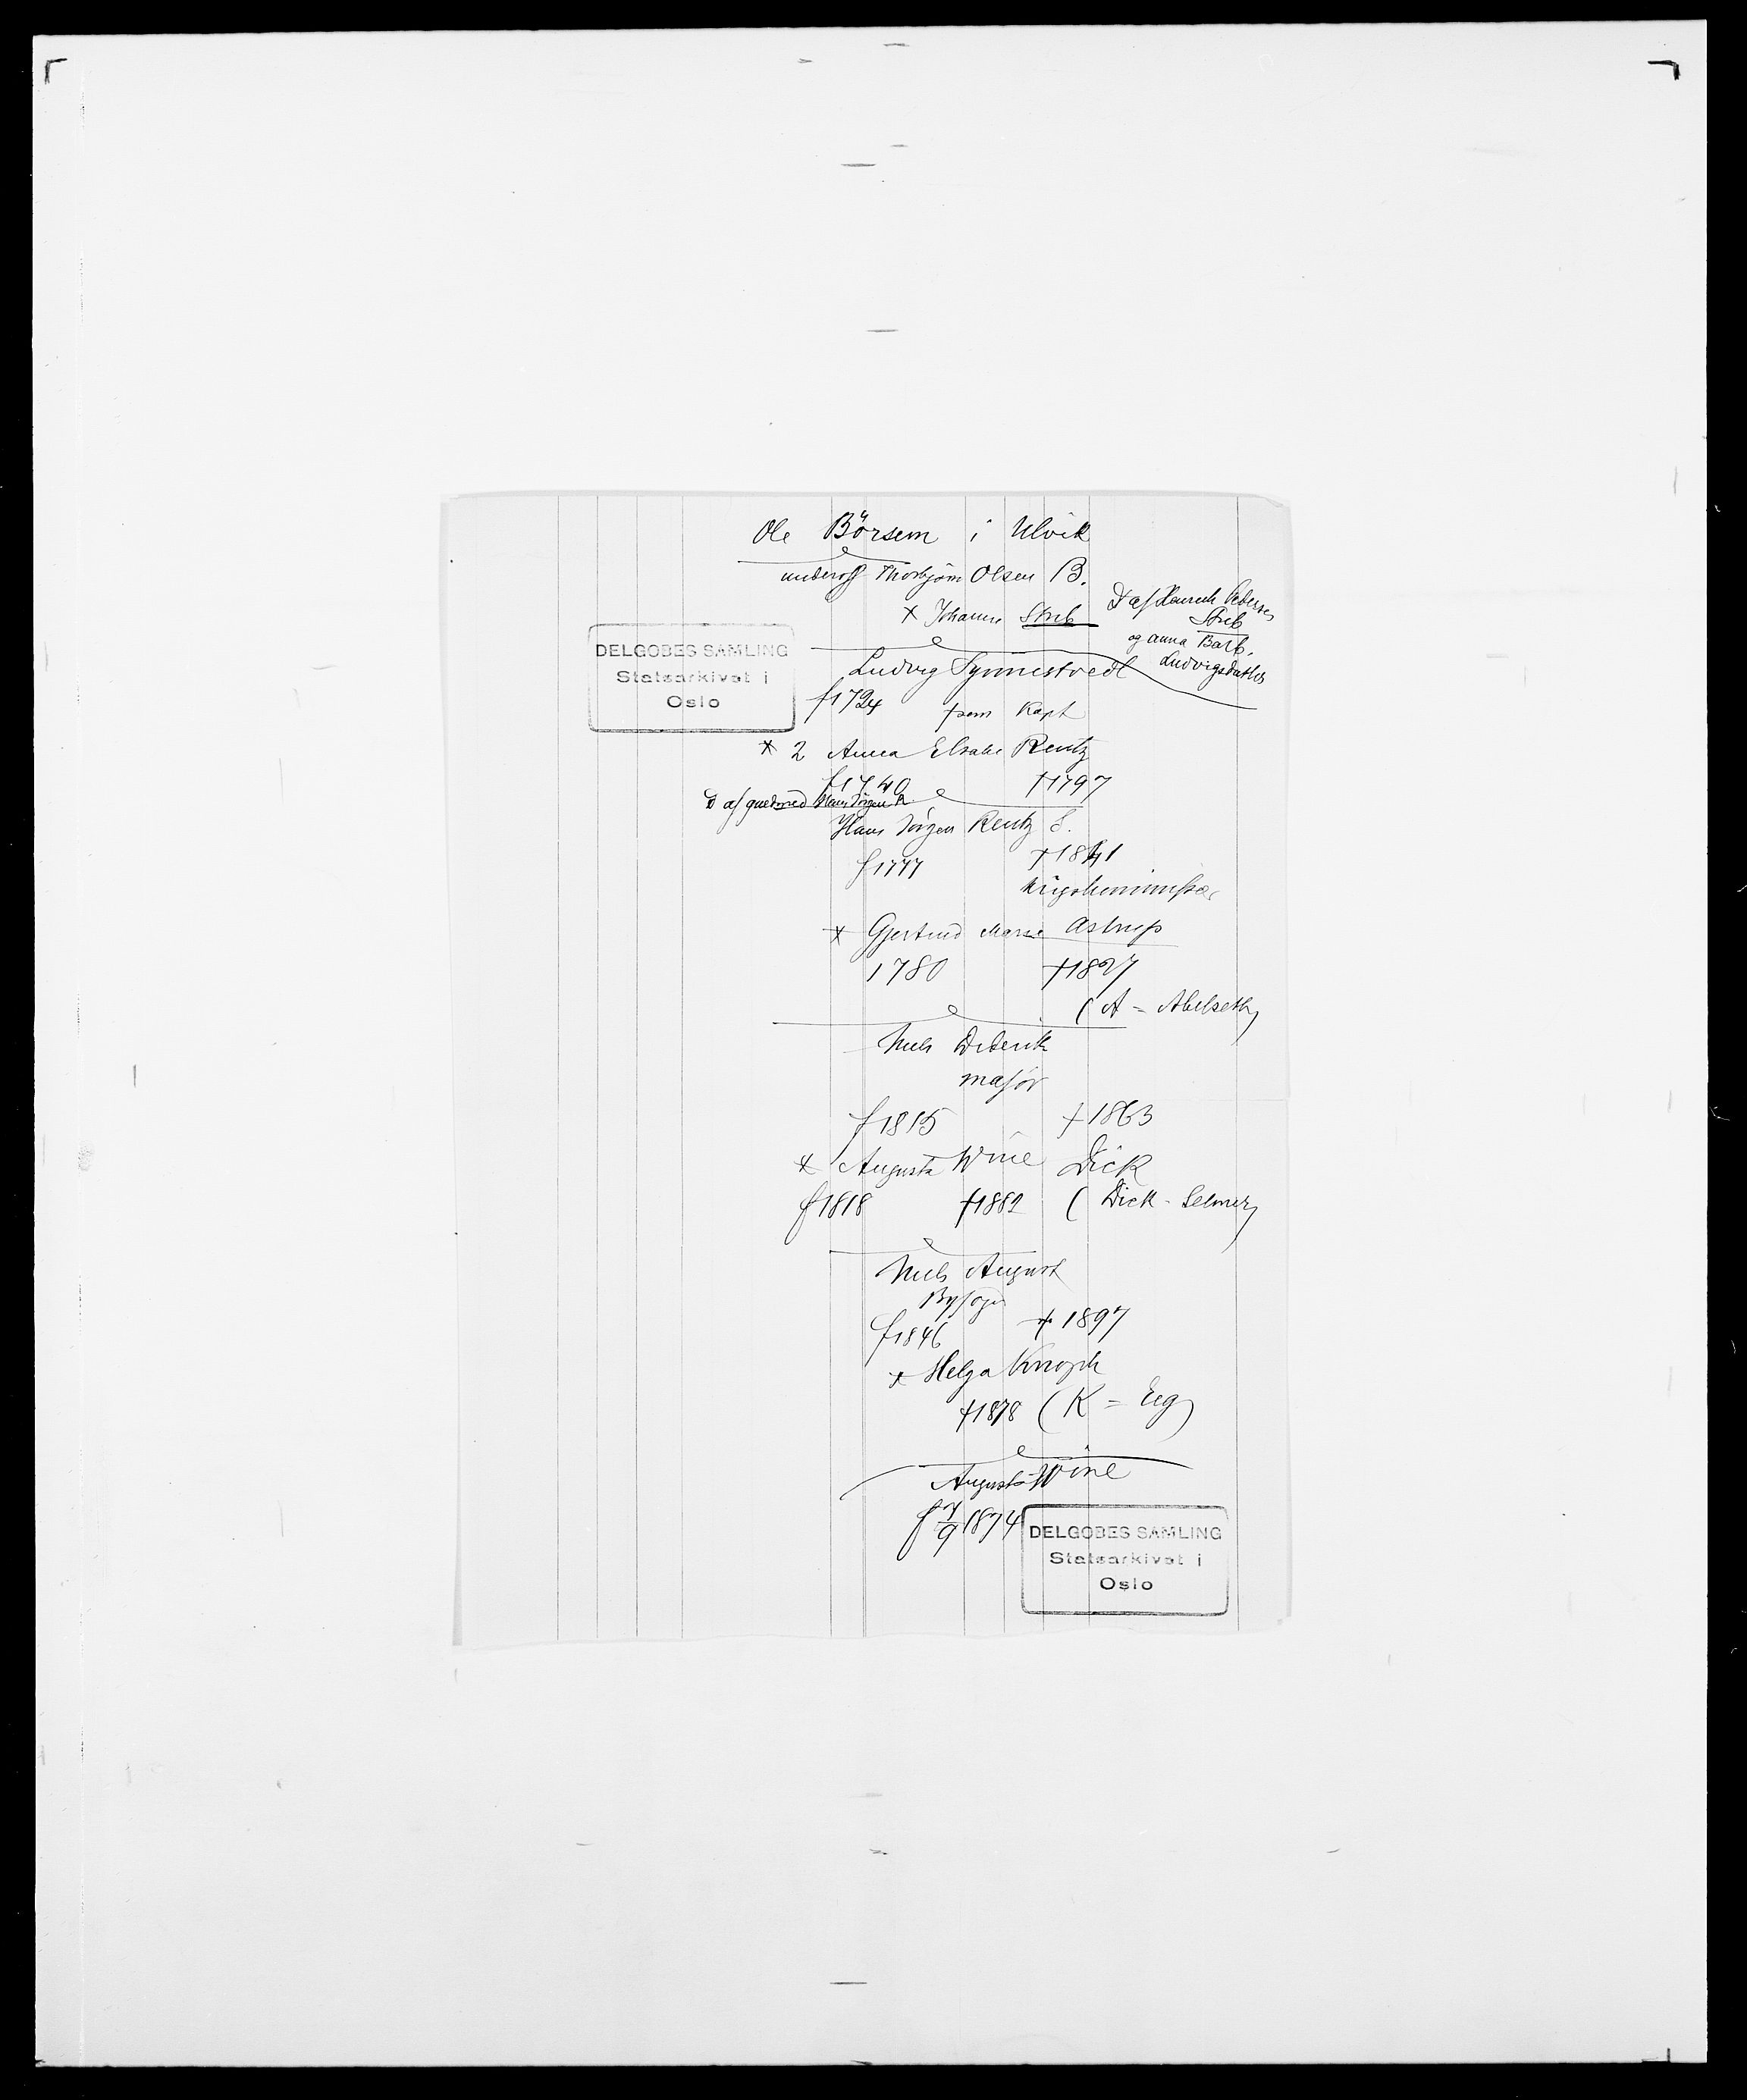 Ole Börsem i Ulvik
underoff Thorbjörn Olsen B.
x Johanne Strib
D af Henrich Pedersen
Strib
og Anna Barb.
Ludvigsdatter
DELGOBES SAMLING
Statsarkivet i
Oslo
Ludvig Synnestvedt
f 1724 † som Kapt
x 2 Anna Elsabe Rentz
f 1740 † 1797
D af Hans Jörgen R
Hans Jörgen Rentz S.
f 1777 † 1841
Krigskommissær
x Gjertrud Marie Astrup
1780 † 1827
( A = Abelseth)
Niels Diderik
major
f 1815 † 1863
x Augusta Wine Dick
f 1818 † 1882 ( Dick - Selmer)
Niels August
Byfoged
f 1846 † 1897
x Helga Knoph
† 1878 ( K = Eeg)
Augusta Wine
f 7/9 1874
DELGOBES SAMLING
Statsarkivet i
Oslo